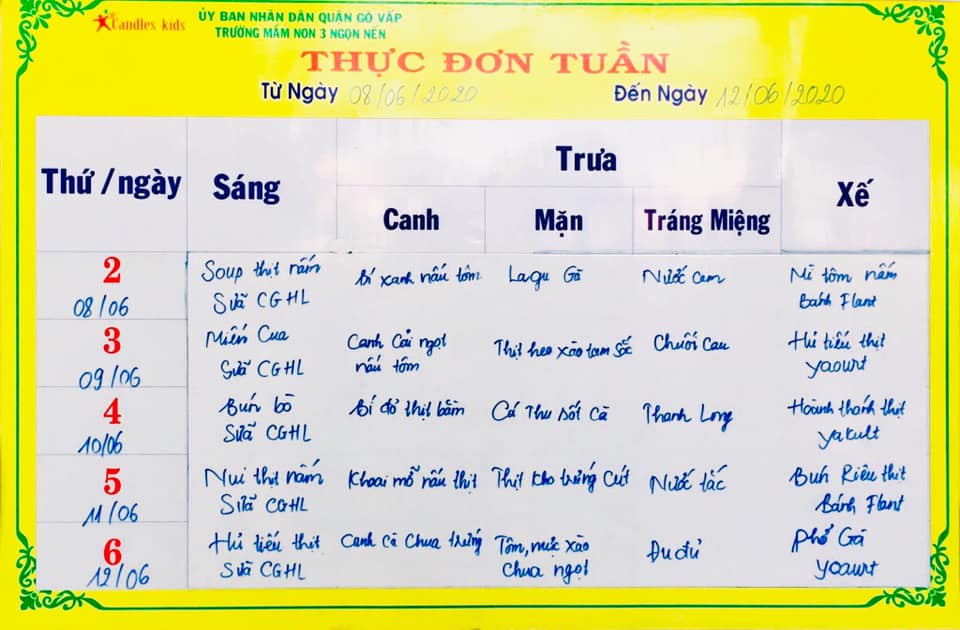 3 Candles kids
ỦY BAN NHÂN DÂN QUẬN GÒ VẤP
TRƯỜNG MẦM NON 3 NGỌN NẾN
THỰC ĐƠN TUẦN
Từ Ngày 08/06/2020 Đến Ngày 12/06/2020
Thứ / ngày Sáng Trưa Xế
Canh Mặn Tráng Miệng
2 Soup thịt nấm Bí xanh nấu tôm Lagu Gà Nước cam Mì tôm nấm
08/06 Sữa CGHL Bánh Flant
3 Miến Cua Canh Cải ngọt Thịt heo xào tam sắc Chuối Cau Hủ tiếu thịt
09/06 Sữa CGHL nấu tôm yaourt
4 Bún bò Bí đỏ thịt bằm Cá Thu sốt cà Thanh Long Hoành thánh thịt
10/06 Sữa CGHL yakult
5 Nui thịt nấm Khoai mỡ nấu thịt Thịt kho trứng Cút Nước tắc Bún Riêu thịt
11/06 Sữa CGHL Bánh Flant
6 Hủ tiếu thịt Canh cà Chua trứng Tôm, mực xào Đu đủ Phở Gà
12/06 Sữa CGHL chua ngọt yoaurt